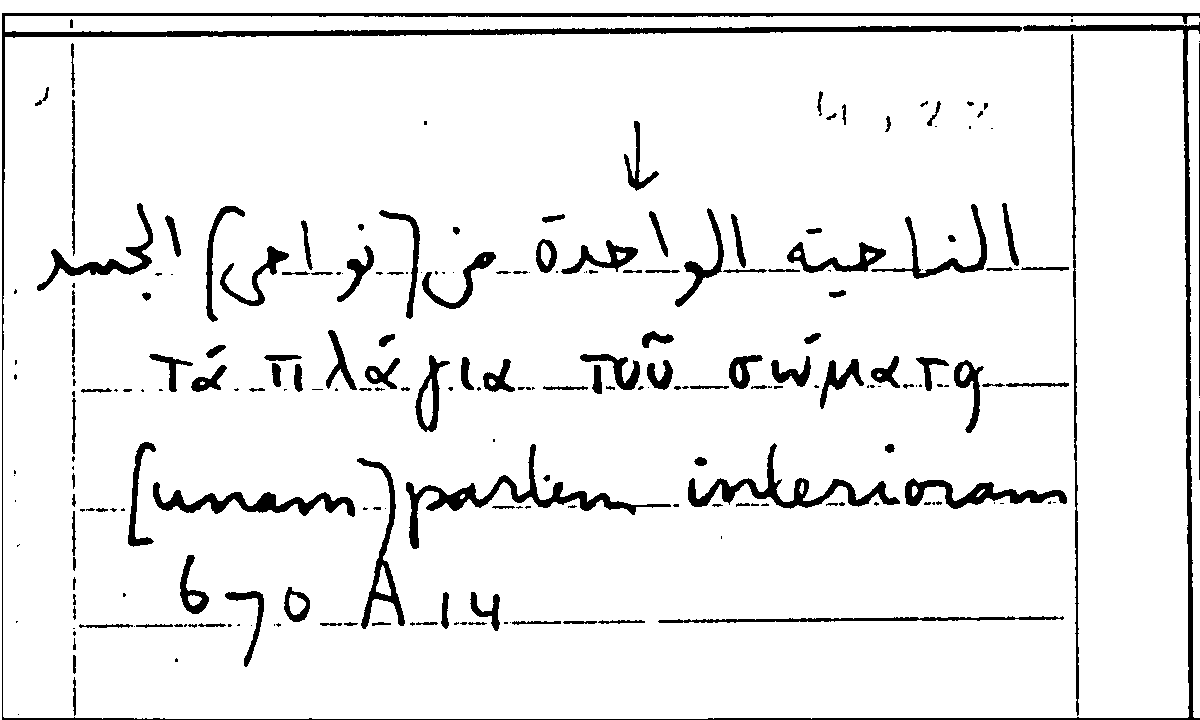 4, 22
↓
الناحية الواحدة من [نواحى] الجسد
τά πλάγια τοῦ σώματα
[unam] partem interioram
670 A 14